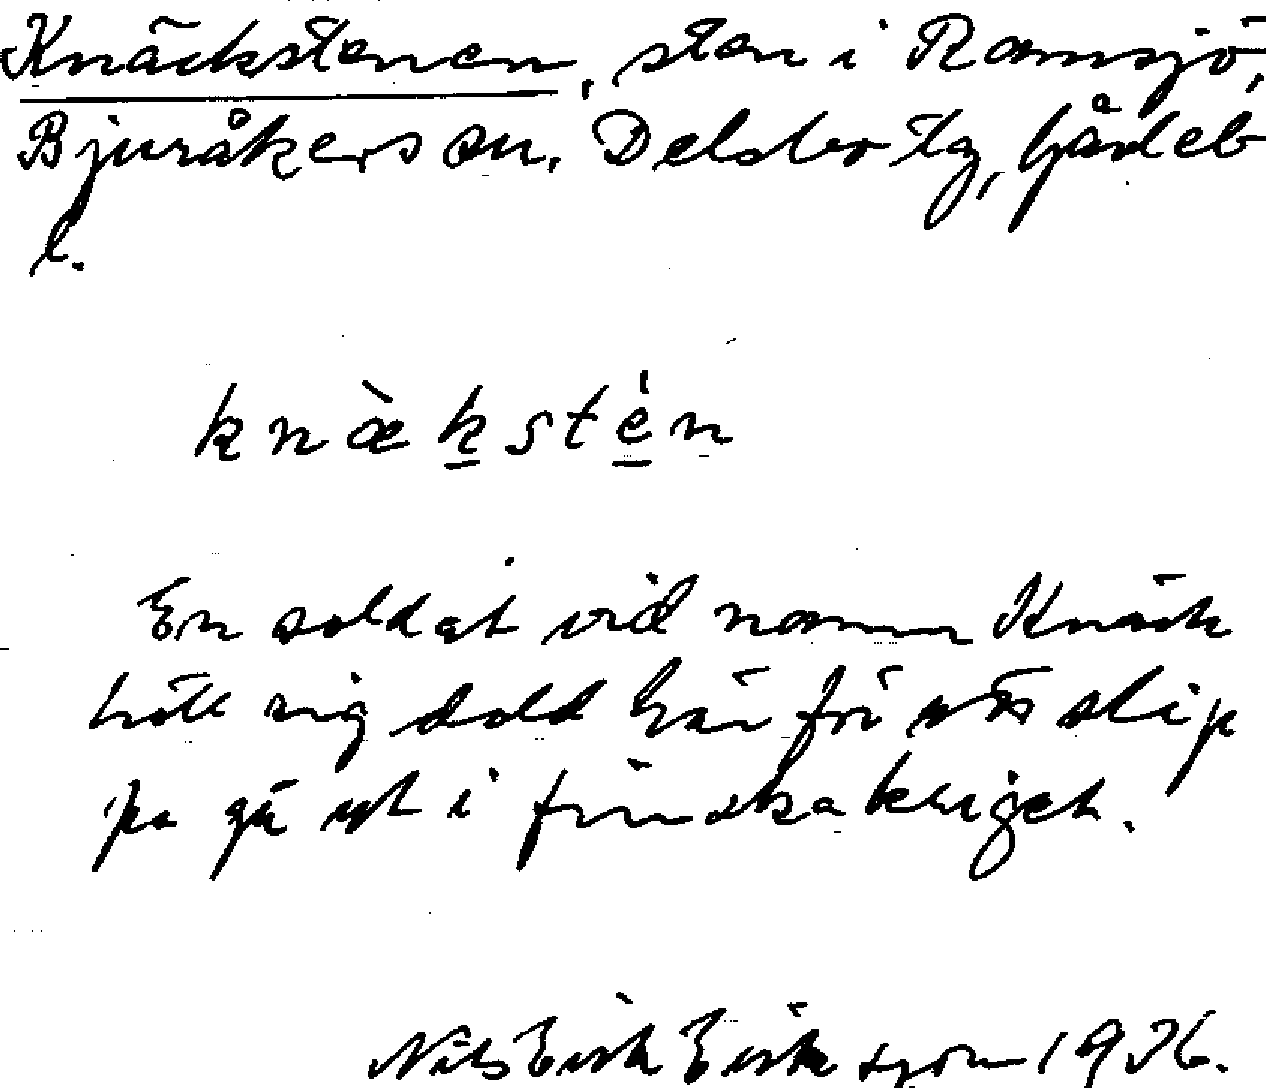 Knäckstenen, sten i Ramsjö,
Bjuråkers sn, Delsbo tg, Gävleb
l.
knæ̀kstén
En soldat vid namn Knäck
höll sig dold här för att slip
pa gå ut i finska kriget.
Nils Erik Eriksson 1926.